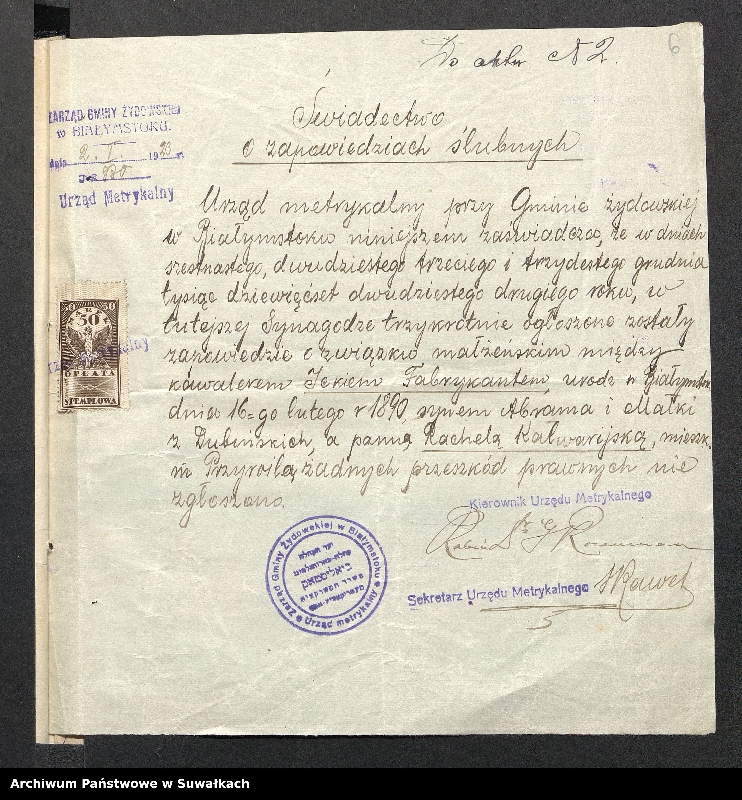 Do aktu № 2.
6
ZARZĄD GMINY ŻYDOWSKIEJ
w BIAŁYMSTOKU.
dnia 2. I. 1923 r.
Urząd Metrykalny
Świadectwo
o zapowiedziach ślubnych
Urząd metrykalny przy Gminie żydowskiej
w Białymstoku niniejszem zaświadcza, że w dniach
szestnastego, dwudziestego trzeciego i trzydestego grudnia
tysiąc dziewięćset dwudziestego drugiego roku, w
tutejszej Synagodze trzykrotnie ogłoszone zostały
zapowiedzie o związku małżeńskim między
kawalerem Ickiem Fabrykantem, urodz w Białymstoku
dnia 16-go lutego r 1890, synem Abrama i Małki
z Dubińskich, a panną Rachelą Kalwaryjską, mieszk.
m Przyrośla, żadnych przeszkód prawnych nie
zgłoszono.
50 50
MAREK
50
OPŁATA
STEMPLOWA
Kierownik Urzędu Metrykalnego
Rabin Dr G Rozenman
Sekretarz Urzędu Metrykalnego
Zarząd Gminy Żydowskiej w Białymstoku
Urząd metrykalny
ביאליסטאק
Archiwum Państwowe w Suwałkach